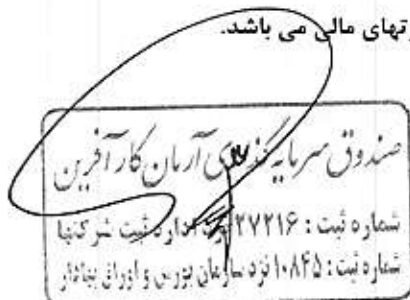 رتهای مالی می باشد.
صندوق سرمایه گذاری آرمان کارآفرین
شماره ثبت : ۲۷۲۱۶ نزد اداره ثبت شرکتها
شماره ثبت : ۱۰۸۴۵ نزد سازمان بورس و اوراق بهادار